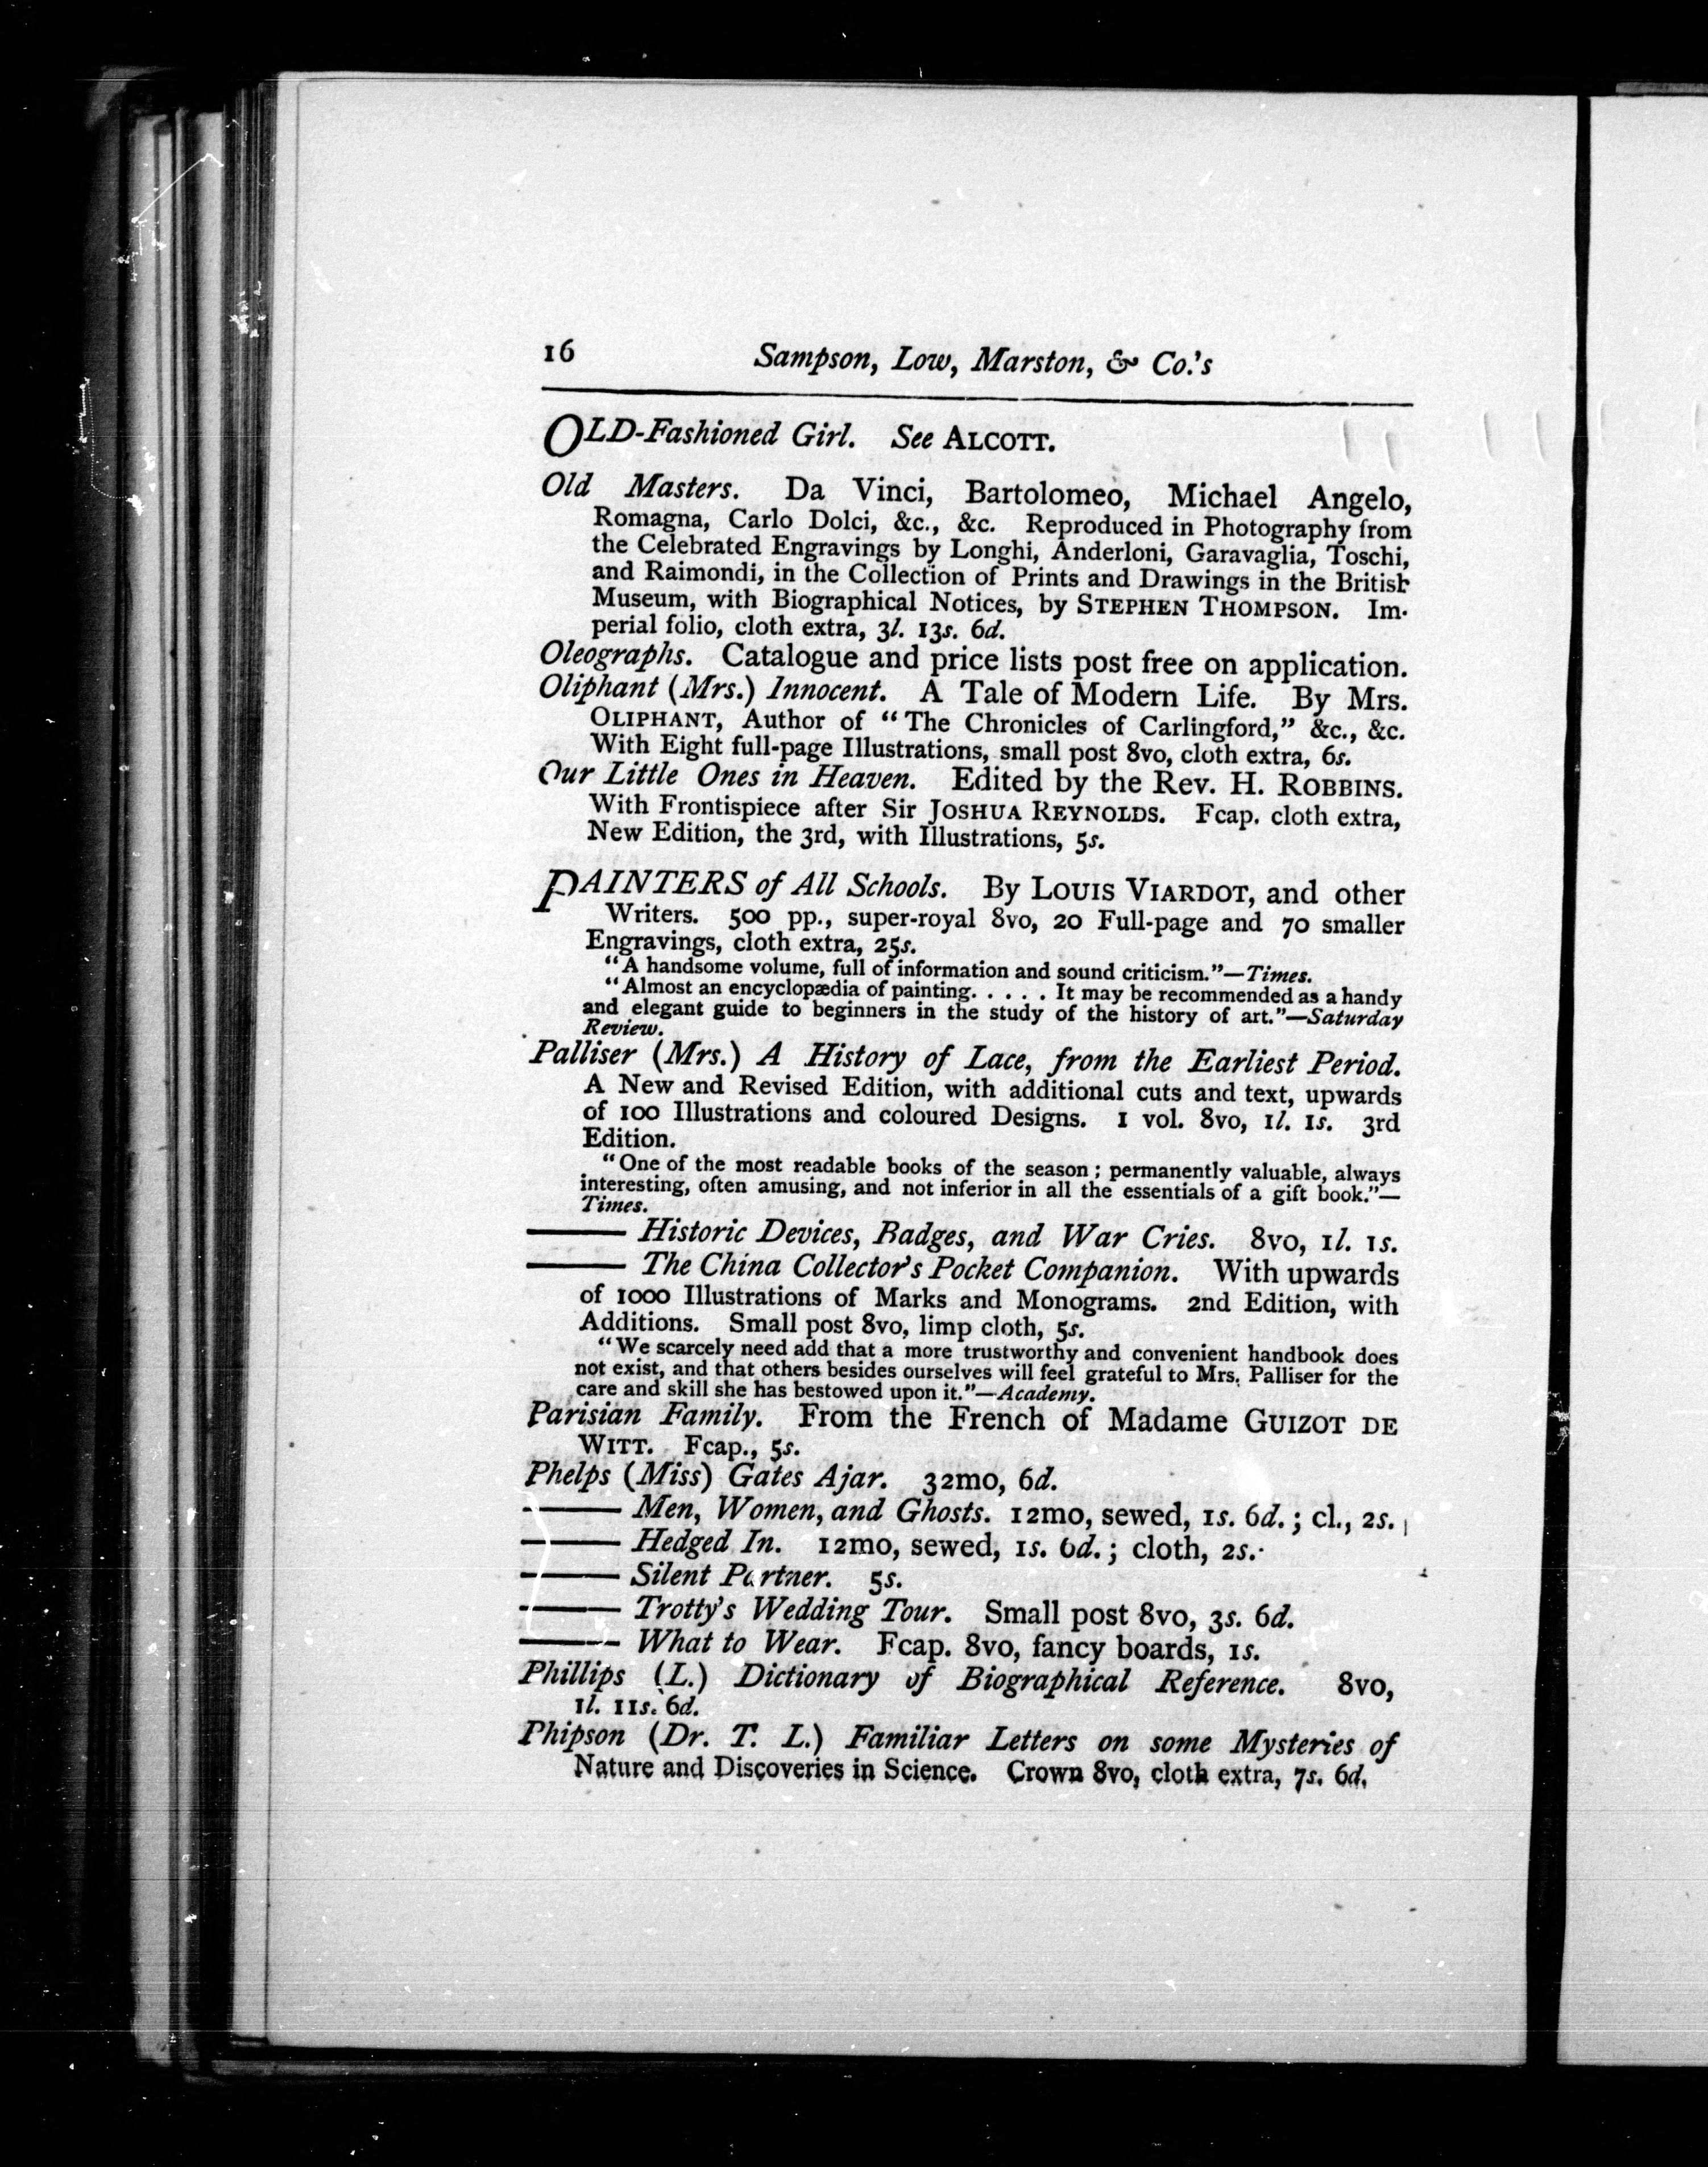 16 Sampson, Low, Marston, & Co.'s
OLD-Fashioned Girl. See ALCOTT.
Old Masters. Da Vinci, Bartolomeo, Michael Angelo,
Romagna, Carlo Dolci, &c., &c. Reproduced in Photography from
the Celebrated Engravings by Longhi, Anderloni, Garavaglia, Toschi,
and Raimondi, in the Collection of Prints and Drawings in the British
Museum, with Biographical Notices, by STEPHEN THOMPSON. Im-
perial folio, cloth extra, 3l. 13s. 6d.
Oleographs. Catalogue and price lists post free on application.
Oliphant (Mrs.) Innocent. A Tale of Modern Life. By Mrs.
OLIPHANT, Author of "The Chronicles of Carlingford," &c., &c.
With Eight full-page Illustrations, small post 8vo, cloth extra, 6s.
Our Little Ones in Heaven. Edited by the Rev. H. ROBBINS.
With Frontispiece after Sir JOSHUA REYNOLDS. Fcap. cloth extra,
New Edition, the 3rd, with Illustrations, 5s.
PAINTERS of All Schools. By LOUIS VIARDOT, and other
Writers. 500 pp., super-royal 8vo, 20 Full-page and 70 smaller
Engravings, cloth extra, 25s.
"A handsome volume, full of information and sound criticism."—Times.
"Almost an encyclopædia of painting. . . . . It may be recommended as a handy
and elegant guide to beginners in the study of the history of art."—Saturday
Review.
Palliser (Mrs.) A History of Lace, from the Earliest Period.
A New and Revised Edition, with additional cuts and text, upwards
of 100 Illustrations and coloured Designs. 1 vol. 8vo, 1l. 1s. 3rd
Edition.
"One of the most readable books of the season; permanently valuable, always
interesting, often amusing, and not inferior in all the essentials of a gift book."—
Times.
——— Historic Devices, Badges, and War Cries. 8vo, 1l. 1s.
——— The China Collector's Pocket Companion. With upwards
of 1000 Illustrations of Marks and Monograms. 2nd Edition, with
Additions. Small post 8vo, limp cloth, 5s.
"We scarcely need add that a more trustworthy and convenient handbook does
not exist, and that others besides ourselves will feel grateful to Mrs. Palliser for the
care and skill she has bestowed upon it."—Academy.
Parisian Family. From the French of Madame GUIZOT DE
WITT. Fcap., 5s.
Phelps (Miss) Gates Ajar. 32mo, 6d.
——— Men, Women, and Ghosts. 12mo, sewed, 1s. 6d.; cl., 2s.
——— Hedged In. 12mo, sewed, 1s. 6d.; cloth, 2s.
——— Silent Partner. 5s.
——— Trotty's Wedding Tour. Small post 8vo, 3s. 6d.
——— What to Wear. Fcap. 8vo, fancy boards, 1s.
Phillips (L.) Dictionary of Biographical Reference. 8vo,
1l. 11s. 6d.
Phipson (Dr. T. L.) Familiar Letters on some Mysteries of
Nature and Discoveries in Science. Crown 8vo, cloth extra, 7s. 6d.